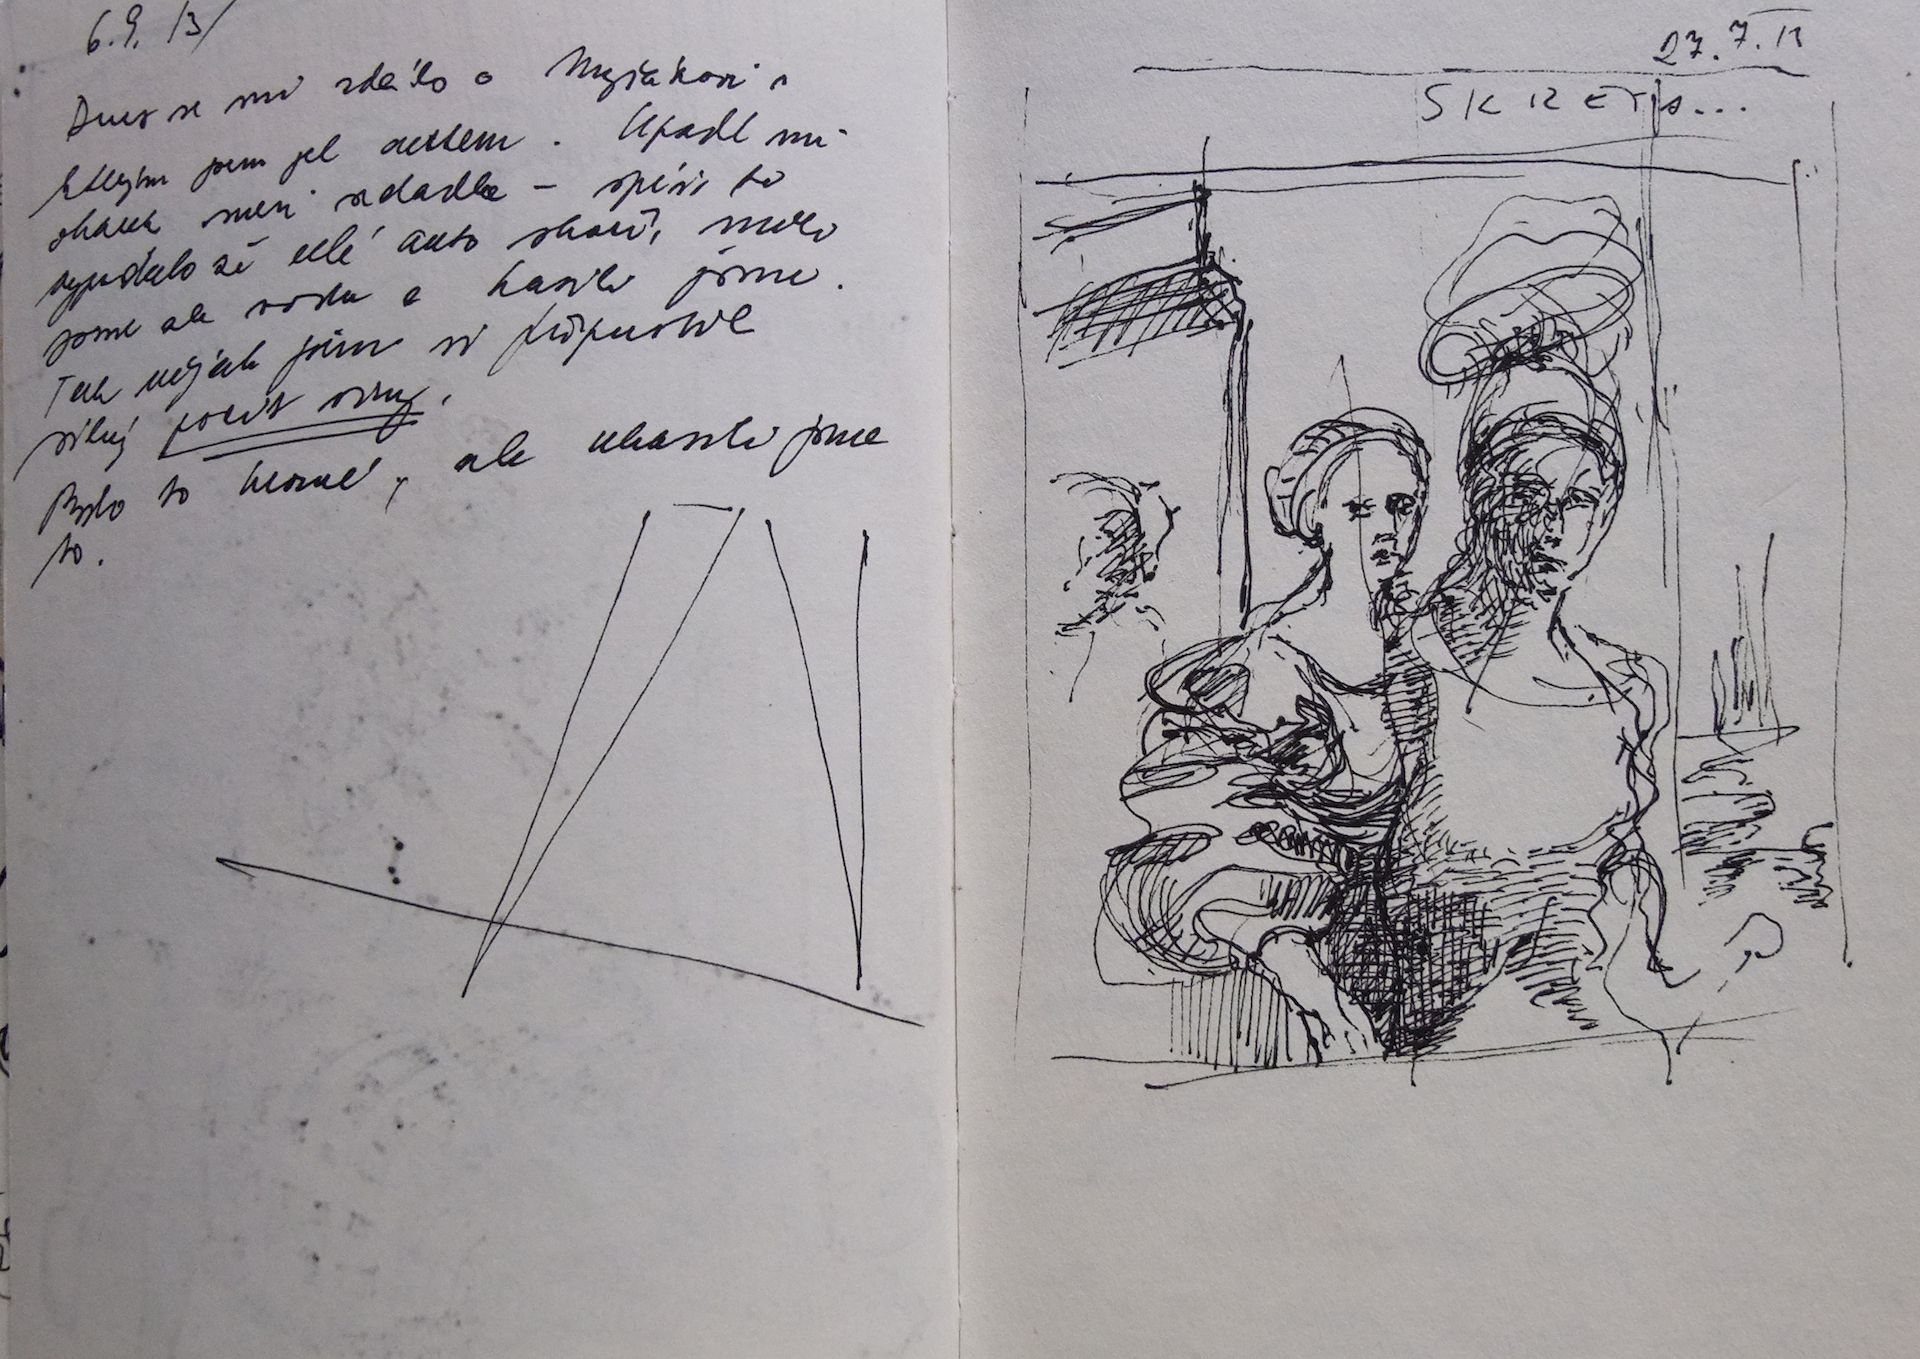 6. 9. 13/
Dnes se mi zdálo o s
kterým jsem jel autem. Upadl mi
mezi sedadla – spíš to
vypadalo že celé auto shoří, měli
jsme ale vodu a hasili jsme.
Tak nějak jsem si připustil
silný pocit viny.
Bylo to hrozné, ale uhasili jsme
to.
27. 7. 13
SKRETA...